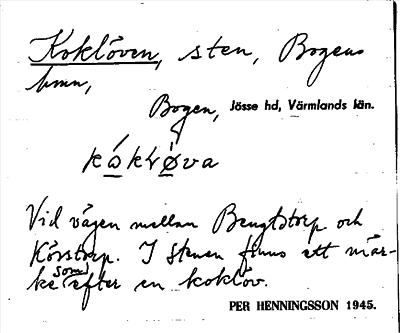 Koklöven, sten, Bogens
hmn,
Bogen, Jösse hd, Värmlands län.
kókløva
Vid vägen mellan Bengtstorp och
Körstorp. I stenen finns ett mär-
ke som efter en koklöv.
PER HENNINGSSON 1945.